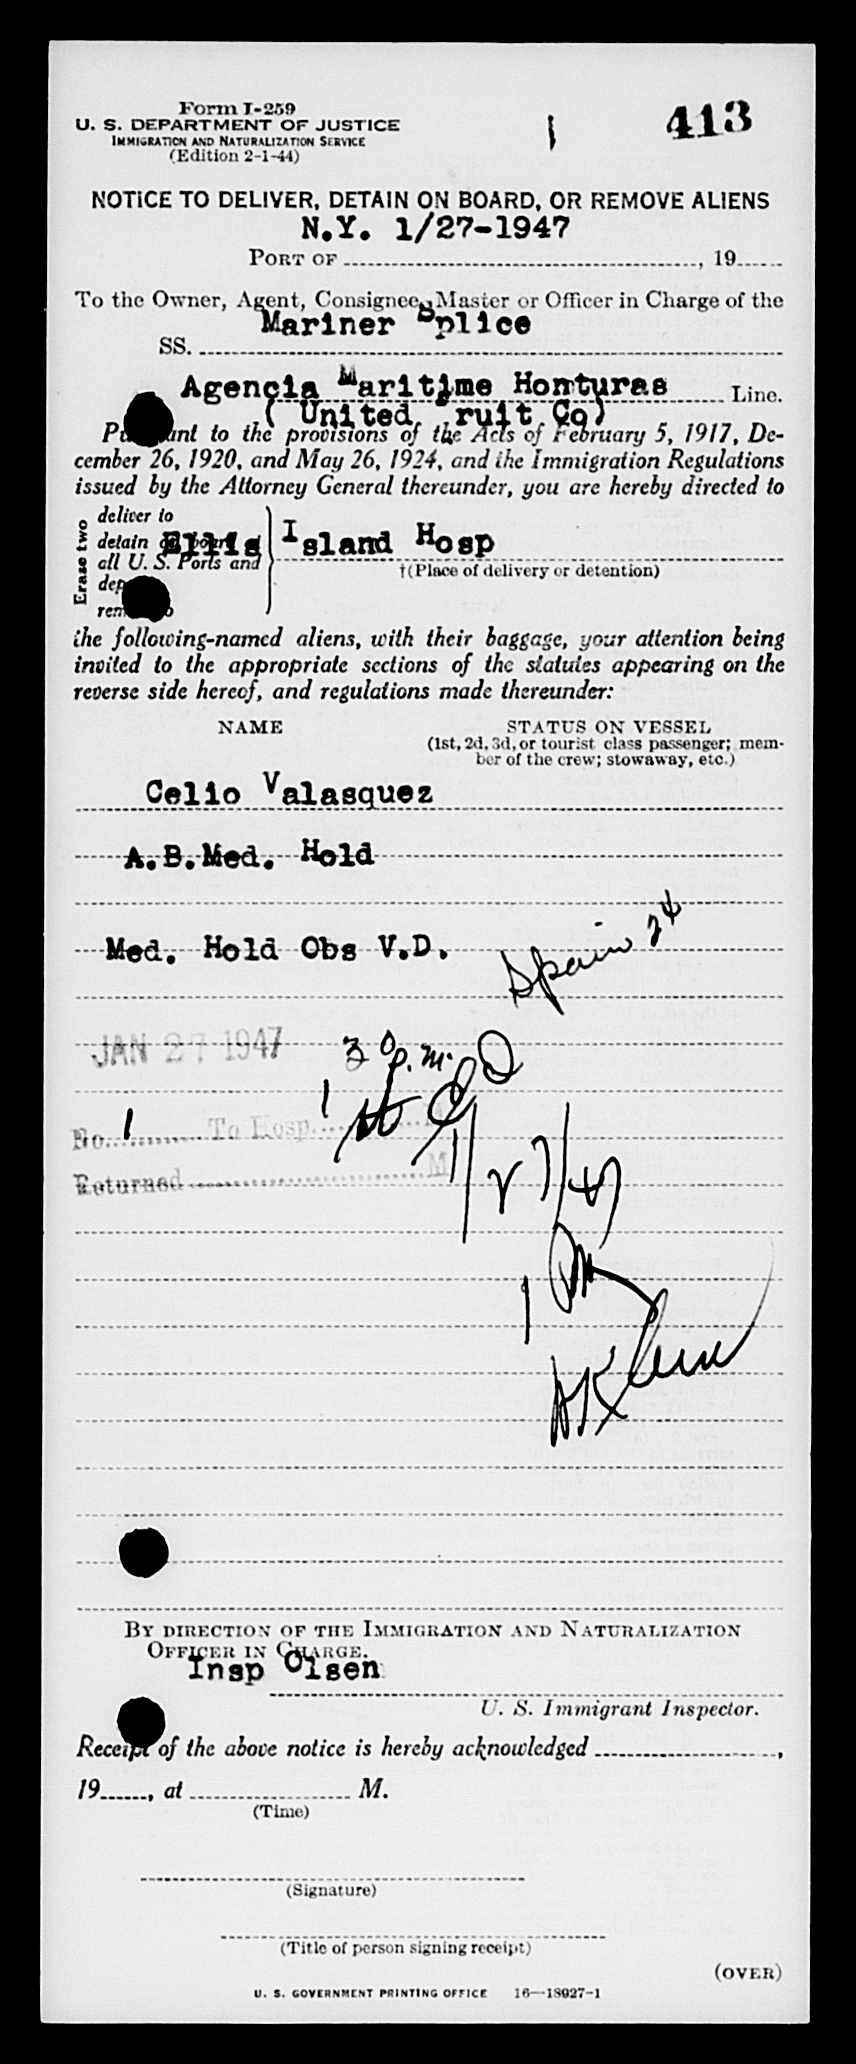 Form I-259
U. S. DEPARTMENT OF JUSTICE
IMMIGRATION AND NATURALIZATION SERVICE
(Edition 2-1-44)
1
413
NOTICE TO DELIVER, DETAIN ON BOARD, OR REMOVE ALIENS
N.Y. 1/27-1947
PORT OF , 19
To the Owner, Agent, Consignee, Master or Officer in Charge of the
Mariner Splice
SS.
Agencia Maritime Honturas Line.
( United Fruit Co)
Pursuant to the provisions of the Acts of February 5, 1917, De-
cember 26, 1920, and May 26, 1924, and the Immigration Regulations
issued by the Attorney General thereunder, you are hereby directed to
Erase two
deliver to
detain on board at
all U. S. Ports and
Ellis Island Hosp
†(Place of delivery or detention)
the following-named aliens, with their baggage, your attention being
invited to the appropriate sections of the statutes appearing on the
reverse side hereof, and regulations made thereunder:
NAME STATUS ON VESSEL
(1st, 2d, 3d, or tourist class passenger; mem-
ber of the crew; stowaway, etc.)
Celio Valasquez
A.B.Med. Hold
Med. Hold Obs V.D.
Spain 24
JAN 27 1947
3 p.m.
No. 1 To Hosp. M
1
Returned M
1/27/47
1
By direction of the Immigration and Naturalization
Officer in Charge.
Insp Olsen
U. S. Immigrant Inspector.
Receipt of the above notice is hereby acknowledged ,
19 , at M.
(Time)
(Signature)
(Title of person signing receipt)
(OVER)
U. S. GOVERNMENT PRINTING OFFICE 16—18027-1